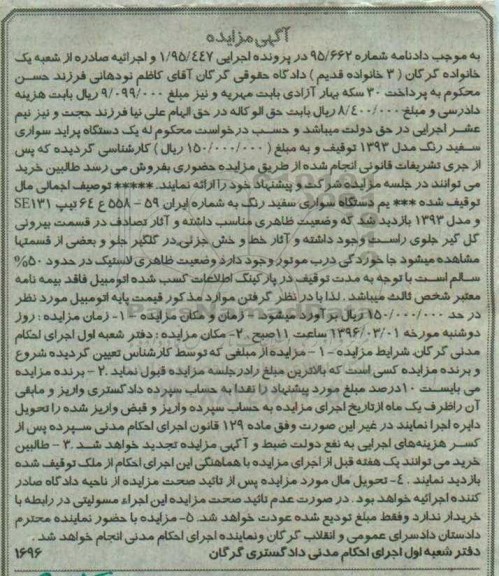 آگهی مزایده
به موجب دادنامه شماره ۹۵/۶۶۲ در پرونده اجرایی ۱/۹۵/۴۴۷ و اجرائیه صادره از شعبه یک
خانواده گرگان ( ۳ خانواده قدیم ) دادگاه حقوقی گرگان آقای کاظم نودهانی فرزند حسن
محکوم به پرداخت ۳۰ سکه بهار آزادی بابت مهریه و نیز مبلغ ۹/۰۹۹/۰۰۰ ریال بابت هزینه
دادرسی و مبلغ ۸/۴۰۰/۰۰۰ ریال بابت حق الوکاله در حق الهام علی نیا فرزند حجت و نیز نیم
عشر اجرایی در حق دولت میباشد و حسب درخواست محکوم له یک دستگاه پراید سواری
سفید رنگ مدل ۱۳۹۳ توقیف و به مبلغ ( ۱۵۰/۰۰۰/۰۰۰ ریال ) کارشناسی گردیده که پس
از جری تشریفات قانونی انجام شده از طریق مزایده حضوری بفروش می رسد طالبین خرید
می توانند در جلسه مزایده شرکت و پیشنهاد خود را ارائه نمایند. ***** توصیف اجمالی مال
توقیف شده *** یم دستگاه سواری سفید رنگ به شماره ایران ۵۹ - ۵۵۸ ع ۶۴ تیپ SE۱۳۱
و مدل ۱۳۹۳ بازدید شد که وضعیت ظاهری مناسب داشته و آثار تصادف در قسمت بیرونی
گل گیر جلوی راست وجود داشته و آثار خط و خش جزئی در گلگیر جلو و بعضی از قسمتها
مشاهده میشود جا خوردگی درب موتور وجود دارد وضعیت ظاهری لاستیک در حدود ۵۰%
سالم است با توجه به مدت توقیف در پارکینگ اطلاعات کسب شده اتومبیل فاقد بیمه نامه
معتبر شخص ثالث میباشد . لذا با در نظر گرفتن موارد مذکور قیمت پایه اتومبیل مورد نظر
در حد ۱۵۰/۰۰۰/۰۰۰ ریال برآورد میشود. - زمان و مکان مزایده - ۱- زمان مزایده : روز
دوشنبه مورخه ۱۳۹۶/۰۳/۰۱ ساعت ۱۱صبح . ۲- مکان مزایده : دفتر شعبه اول اجرای احکام
مدنی گرگان. شرایط مزایده - ۱ - مزایده از مبلغی که توسط کارشناس تعیین گردیده شروع
و برنده مزایده کسی است که بالاترین مبلغ را در جلسه مزایده قبول نماید .۲ - برنده مزایده
می بایست ۱۰درصد مبلغ مورد پیشنهاد را نقدا به حساب سپرده دادگستری واریز و مابقی
آن را ظرف یک ماه از تاریخ اجرای مزایده به حساب سپرده واریز و قبض واریز شده را تحویل
دایره اجرا نمایند در غیر این صورت وفق ماده ۱۲۹ قانون اجرای احکام مدنی سپرده پس از
کسر هزینه‌های اجرایی به نفع دولت ضبط و آگهی مزایده تجدید خواهد شد .۳ - طالبین
خرید می توانند یک هفته قبل از اجرای مزایده با هماهنگی این اجرای احکام از ملک توقیف شده
بازدید نمایند . ٤- تحویل مال مورد مزایده پس از تائید صحت مزایده از ناحیه دادگاه صادر
کننده اجرائیه خواهد بود . در صورت عدم تائید صحت مزایده این اجراء مسولیتی در رابطه با
خریدار ندارد وفقط مبلغ تودیع شده عودت خواهد شد. ۵- مزایده با حضور نماینده محترم
دادستان دادسرای عمومی و انقلاب گرگان ونماینده اجرای احکام مدنی انجام خواهد شد .
دفتر شعبه اول اجرای احکام مدنی دادگستری گرگان ۱۶۹۶